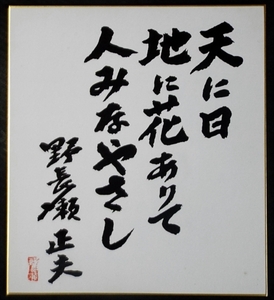 天に日
地に花ありて
人みなやさし
野長瀬正夫